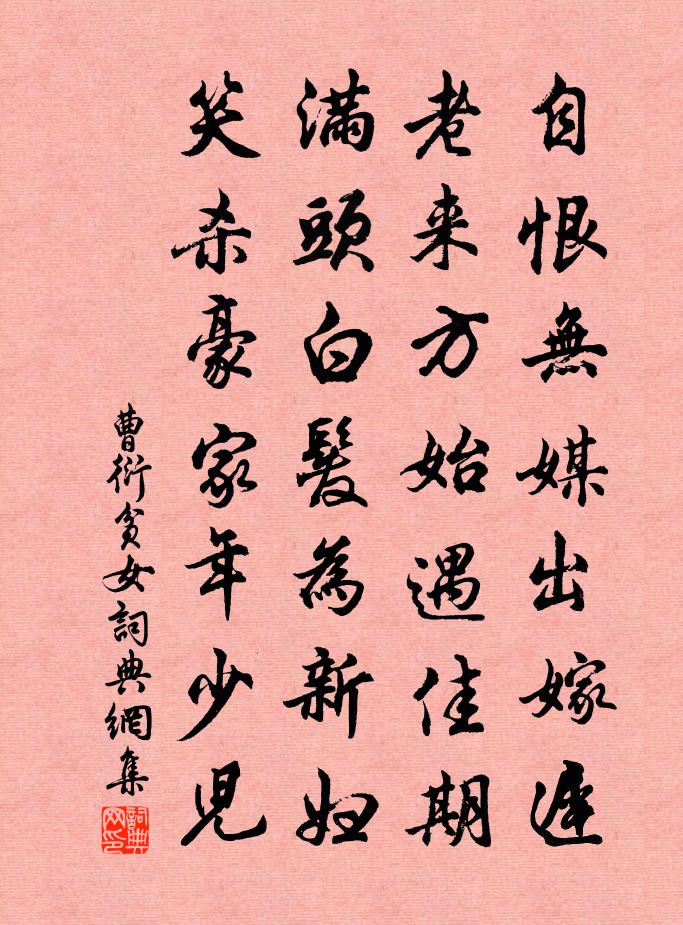 自恨無媒出嫁遲
老来方始遇佳期
滿頭白髮為新婦
笑杀豪家年少児
曹衍貧女詞典網集
詞典网印